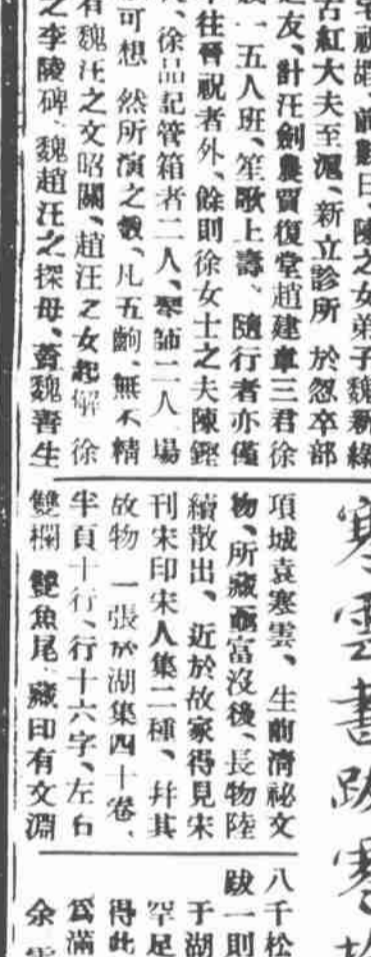 宅祝嘏、前數日、陳之女弟子魏新綠
古紅大夫至滬、新立診所 於忽卒部
之友、計汪劍農賀復堂趙建章三君徐
一五人班、笙歌上壽、隨行者亦僅
往晉祝者外、餘則徐女士之夫陳鏗
、徐品記管箱者二人、琴師二人 場
可想 然所演之戲、凡五齣、無不精
有魏汪之文昭關、趙汪之女起解 徐
之李陵碑、魏趙汪之探母、蓋魏專生
寒雲書跋寒
項城袁寒雲、生前濟祕文
物、所藏 富沒後、長物陸
續散出、近於故家得見宋
刊宋印宋人集二種、幷其
故物 一張於湖集四十卷、
半頁十行、行十六字、左右
雙欄 雙魚尾、藏印有文淵
八千松
跋一則
于湖
罕足
得此
爲滿
余